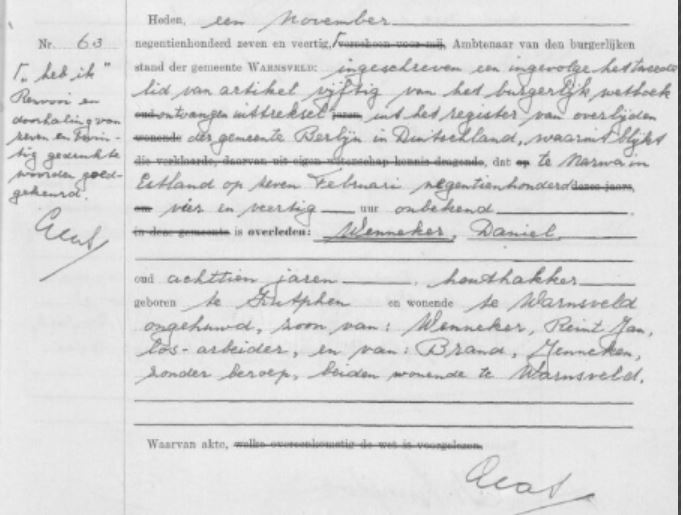 Nr. 63
„ heb ik"
Renvooi en
doorhaling van
zeven en twin-
tig gedrukte
woorden goed-
gekeurd.
Heden, een November
negentienhonderd zeven en veertig, verscheen voor mij, Ambtenaar van den burgerlijken
stand der gemeente WARNSVELD: ingeschreven een ingevolge het tweede
lid van artikel vijftig van het burgerlijk wetboek
oud ontvangen uittreksel jaren, uit het register van overlijden
wonende der gemeente Berlijn in Duitschland, waaruit blijkt
die verklaarde, daarvan uit eigen wetenschap kennis dragende, dat op te Narwa in
Estland op zeven Februari negentienhonderd dezes jaars,
om vier en veertig uur onbekend
in deze gemeente is overleden: Wenneker, Daniel.
oud achttien jaren, houthakker
geboren te Zutphen en wonende te Warnsveld
ongehuwd, zoon van: Wenneker, Reint Jan,
los-arbeider, en van: Brand, Jenneken,
zonder beroep, beiden wonende te Warnsveld.
Waarvan akte, welke overeenkomstig de wet is voorgelezen.